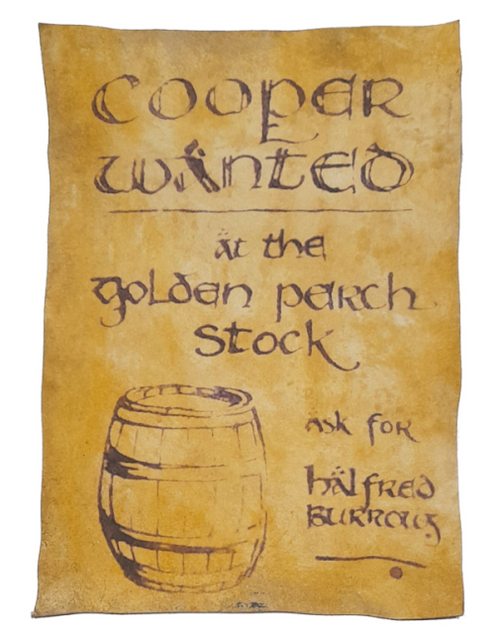 COOPER
WANTED
at the
golden perch
Stock
ask for
halfred
Burrows